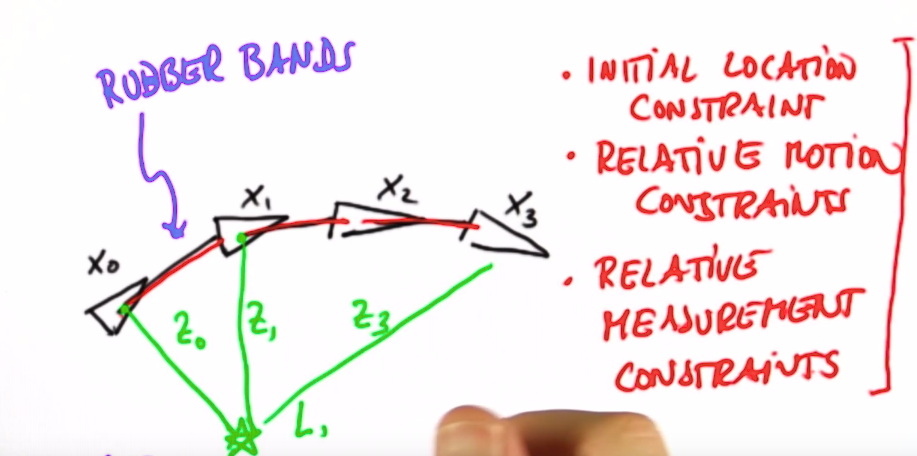 RUBBER BANDS
X0
X1
X2
X3
Z0
Z1
Z3
L1
• INITIAL LOCATION
CONSTRAINT
• RELATIVE MOTION
CONSTRAINTS
• RELATIVE
MEASUREMENT
CONSTRAINTS